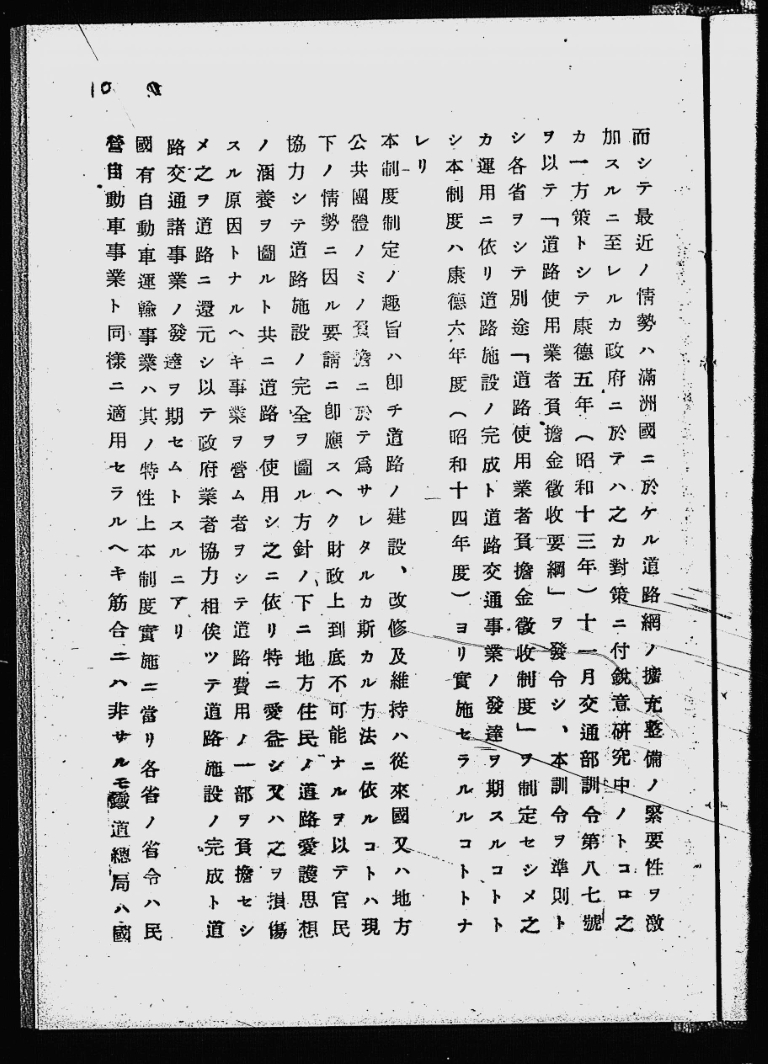 而シテ最近ノ情勢ハ滿洲國ニ於ケル道路網ノ擴充整備ノ緊要性ヲ激
加スルニ至レルカ政府ニ於テハ之カ對策ニ付銳意硏究中ノトコロ之
カ一方策トシテ康德五年(昭和十三年)十一月交通部訓令第八七號
ヲ以テ「道路使用業者負擔金徵收要綱」ヲ發令シ、本訓令ヲ準則ト
シ各省ヲシテ別途「道路使用業者負擔金徵收制度」ヲ制定セシメ之
カ運用ニ依リ道路施設ノ完成ト道路交通事業ノ發達ヲ期スルコトト
シ本制度ハ康德六年度(昭和十四年度)ヨリ實施セラルルコトトナ
レリ
本制度制定ノ趣旨ハ卽チ道路ノ建設、改修及維持ハ從來國又ハ地方
公共團體ノミノ負擔ニ於テ爲サレタルカ斯カル方法ニ依ルコトハ現
下ノ情勢ニ因ル要請ニ卽應スヘク財政上到底不可能ナルヲ以テ官民
協力シテ道路施設ノ完全ヲ圖ル方針ノ下ニ地方住民ノ道路愛護思想
ノ涵養ヲ圖ルト共ニ道路ヲ使用シ之ニ依リ特ニ愛益シ又ハ之ヲ損傷
スル原因トナルヘキ事業ヲ營ム者ヲシテ道路費用ノ一部ヲ負擔セシ
メ之ヲ道路ニ還元シ以テ政府業者協力相俟ツテ道路施設ノ完成ト道
路交通諸事業ノ發達ヲ期セムトスルニアリ
國有自動車運輸事業ハ其ノ特性上本制度實施ニ當リ各省ノ省令ハ民
營自動車事業ト同樣ニ適用セラルヘキ筋合ニハ非サルモ鐵道總局ハ國